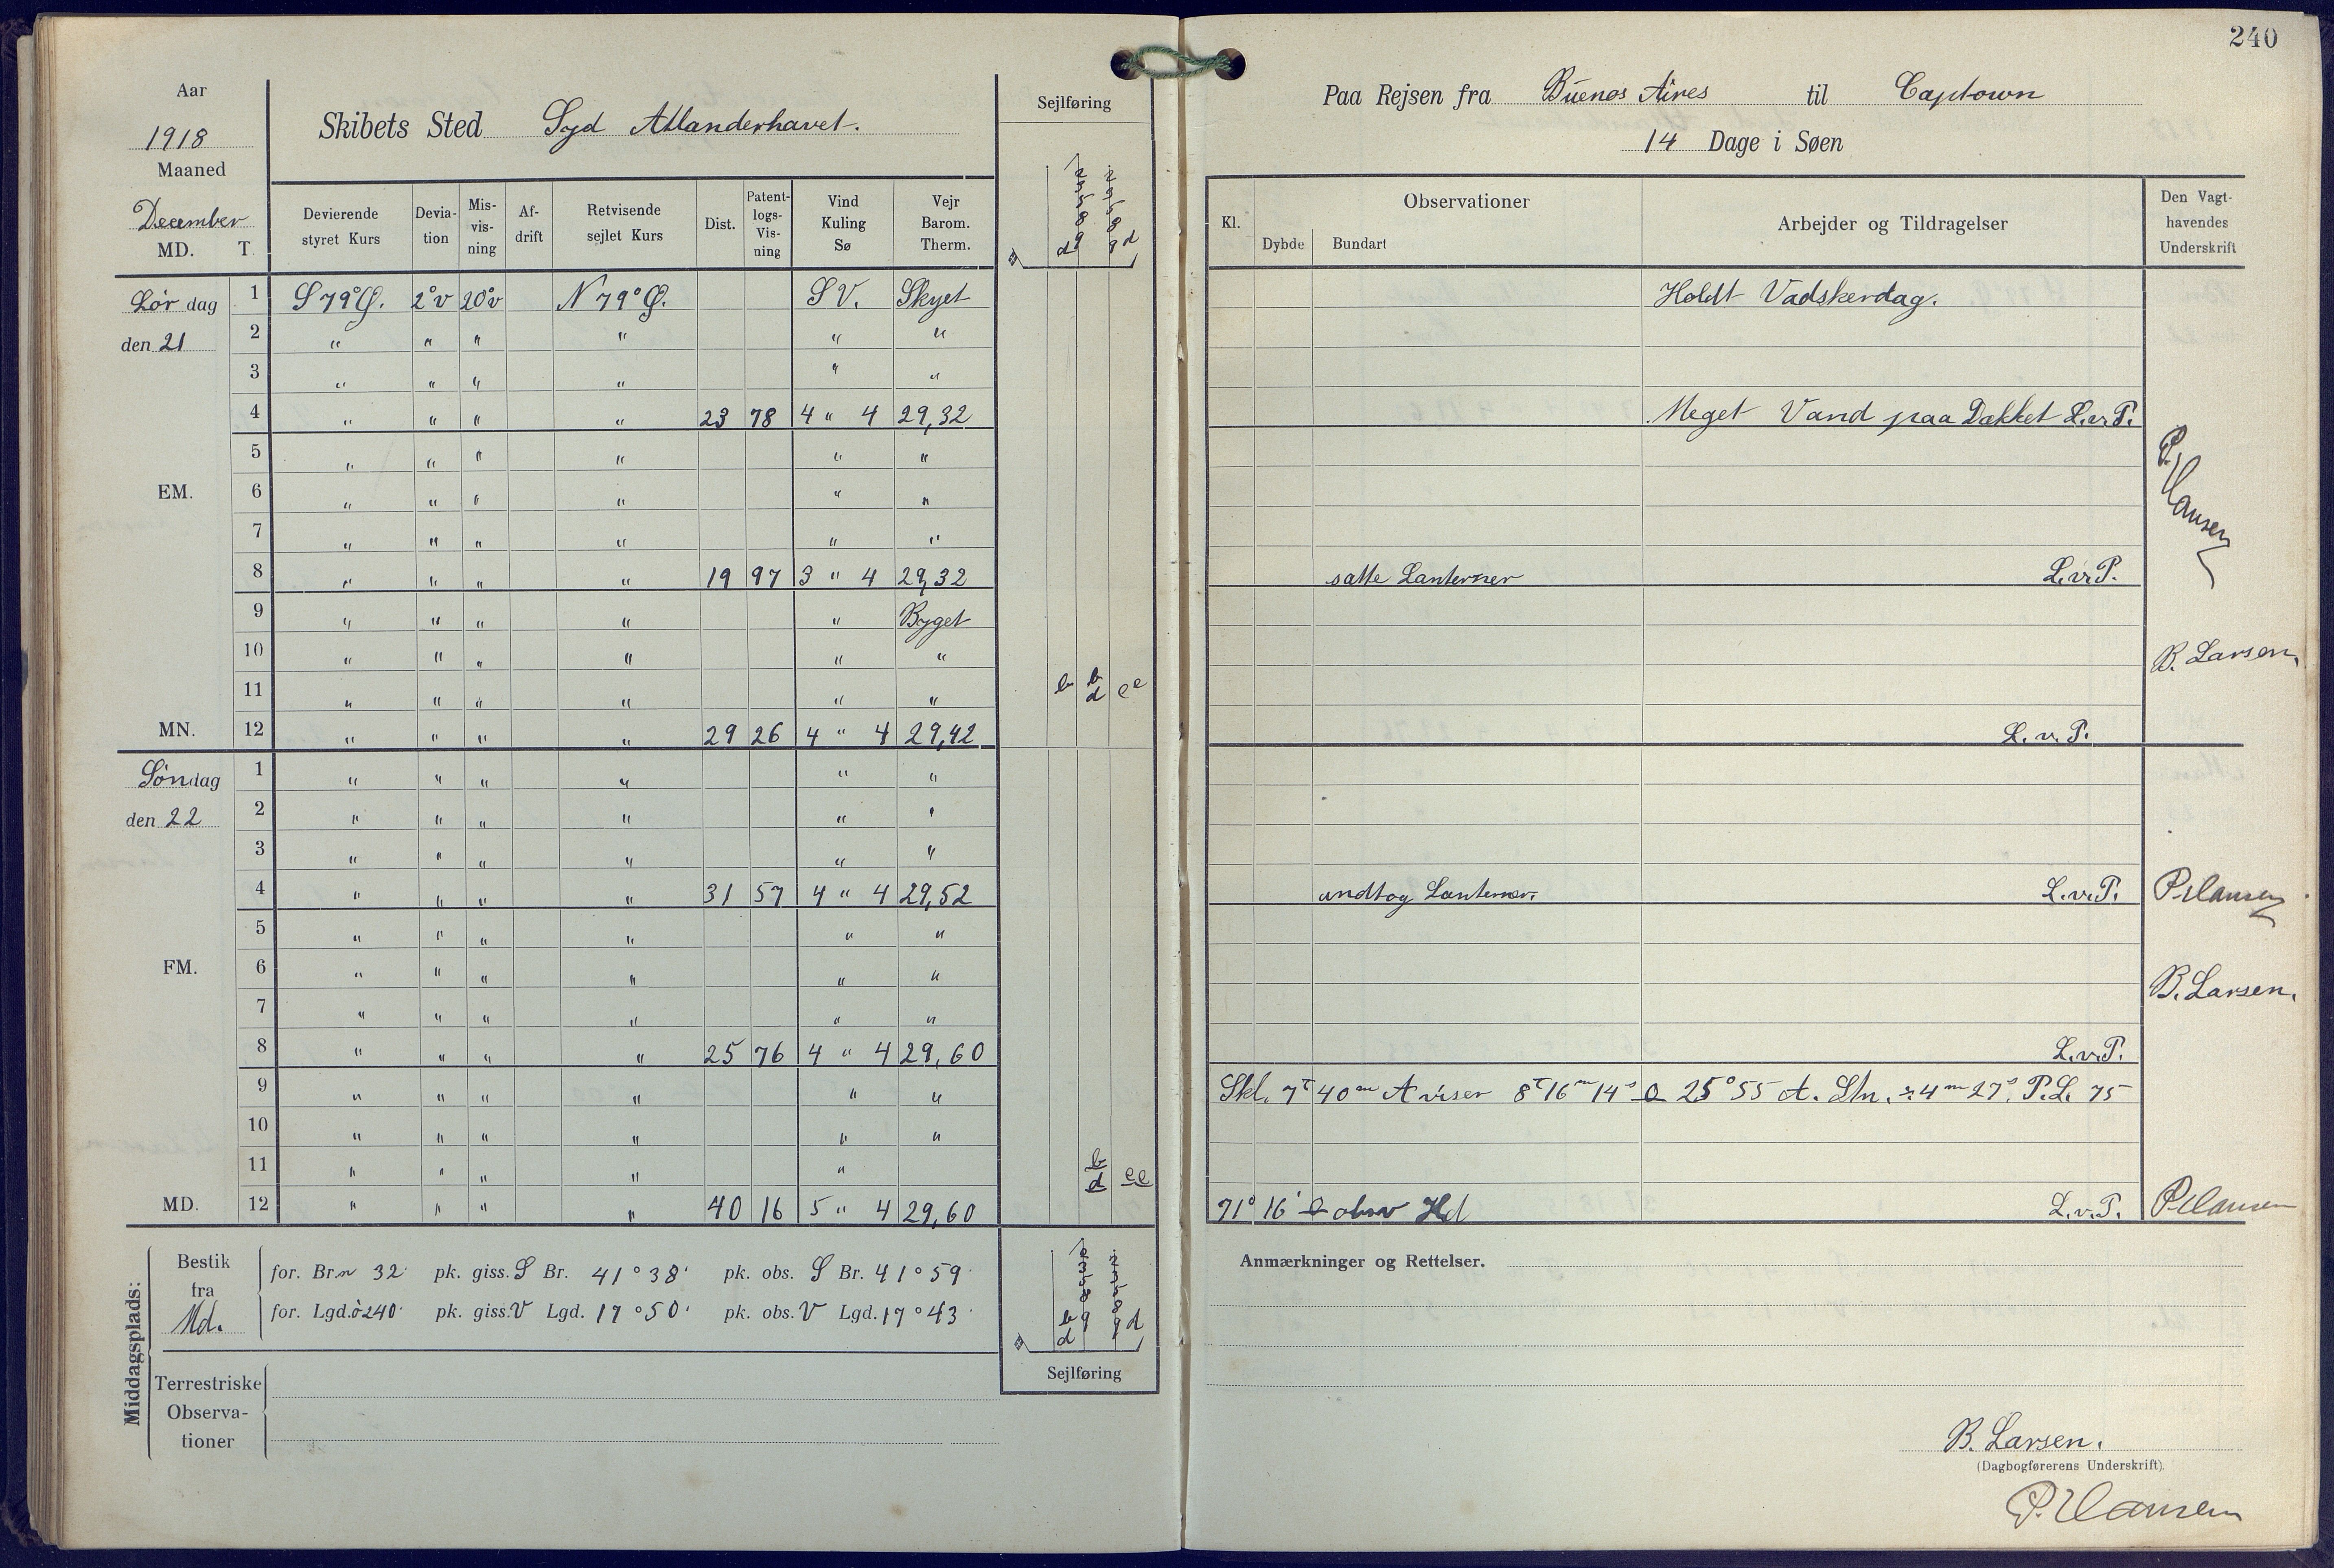 240
Aar
1918
Maaned
December
MD. T.
Skibets Sted Syd Atlanderhavet.
Sejlføring
Devierende styret Kurs
Devia-tion
Mis-vis-ning
Af-drift
Retvisende sejlet Kurs
Dist.
Patent-logs-Vis-ning
Vind Kuling Sø
Vejr Barom. Therm.
Lørdag 1 S 79° Ø. 2°v 20°v N 79° Ø. S V. Skyet
den 21 2 " " " " " "
3 " " " " " "
4 " " " " 23 78 4 " 4 29,32
5 " " " " " "
EM. 6 " " " " " "
7 " " " " " "
8 " " " " 19 97 3 " 4 29,32
9 " " " " " Byget
10 " " " " " "
11 " " " " " " b b d e e
MN. 12 " " " " 29 26 4 " 4 29,42
Søndag 1 " " " " " "
den 22 2 " " " " " "
3 " " " " " "
4 " " " " 31 57 4 " 4 29,52
5 " " " " " "
FM. 6 " " " " " "
7 " " " " " "
8 " " " " 25 76 4 " 4 29,60
9 " " " " " "
10 " " " " " "
11 " " " " " b d e e
MD. 12 " " " " 40 16 5 " 4 29,60
Middagsplads:
Bestik fra Md.
for. Br. n 32' pk. giss. S Br. 41°38' pk. obs. S Br. 41°59'
for. Lgd. ö 240' pk. giss. V Lgd. 17°50' pk. obs. V Lgd. 17°43'
Terrestriske
Observa-
tioner
Sejlføring
Paa Rejsen fra Buenos Aires til Captown
14 Dage i Søen
Kl.
Observationer
Dybde Bundart
Arbejder og Tildragelser
Den Vagt-
havendes
Underskrift
Holdt Vadskerdag.
Meget Vand paa Dækket L.v.P.
P. Hansen
satte Lanterner L.v.P.
B. Larsen.
L.v.P.
indtog Lanterner. L.v.P. P. Hansen
B. Larsen.
L.v.P.
Skl. 7ᵗ 40ᵐ A viser 8ᵗ 16ᵐ 14ˢ 25°55 A. Stn. 4ᵐ 27ˢ. P.L. 75
71° 16' obsv Hd L.v.P. P. Hansen
Anmærkninger og Rettelser.
B. Larsen.
(Dagbogførerens Underskrift).
P. Hansen